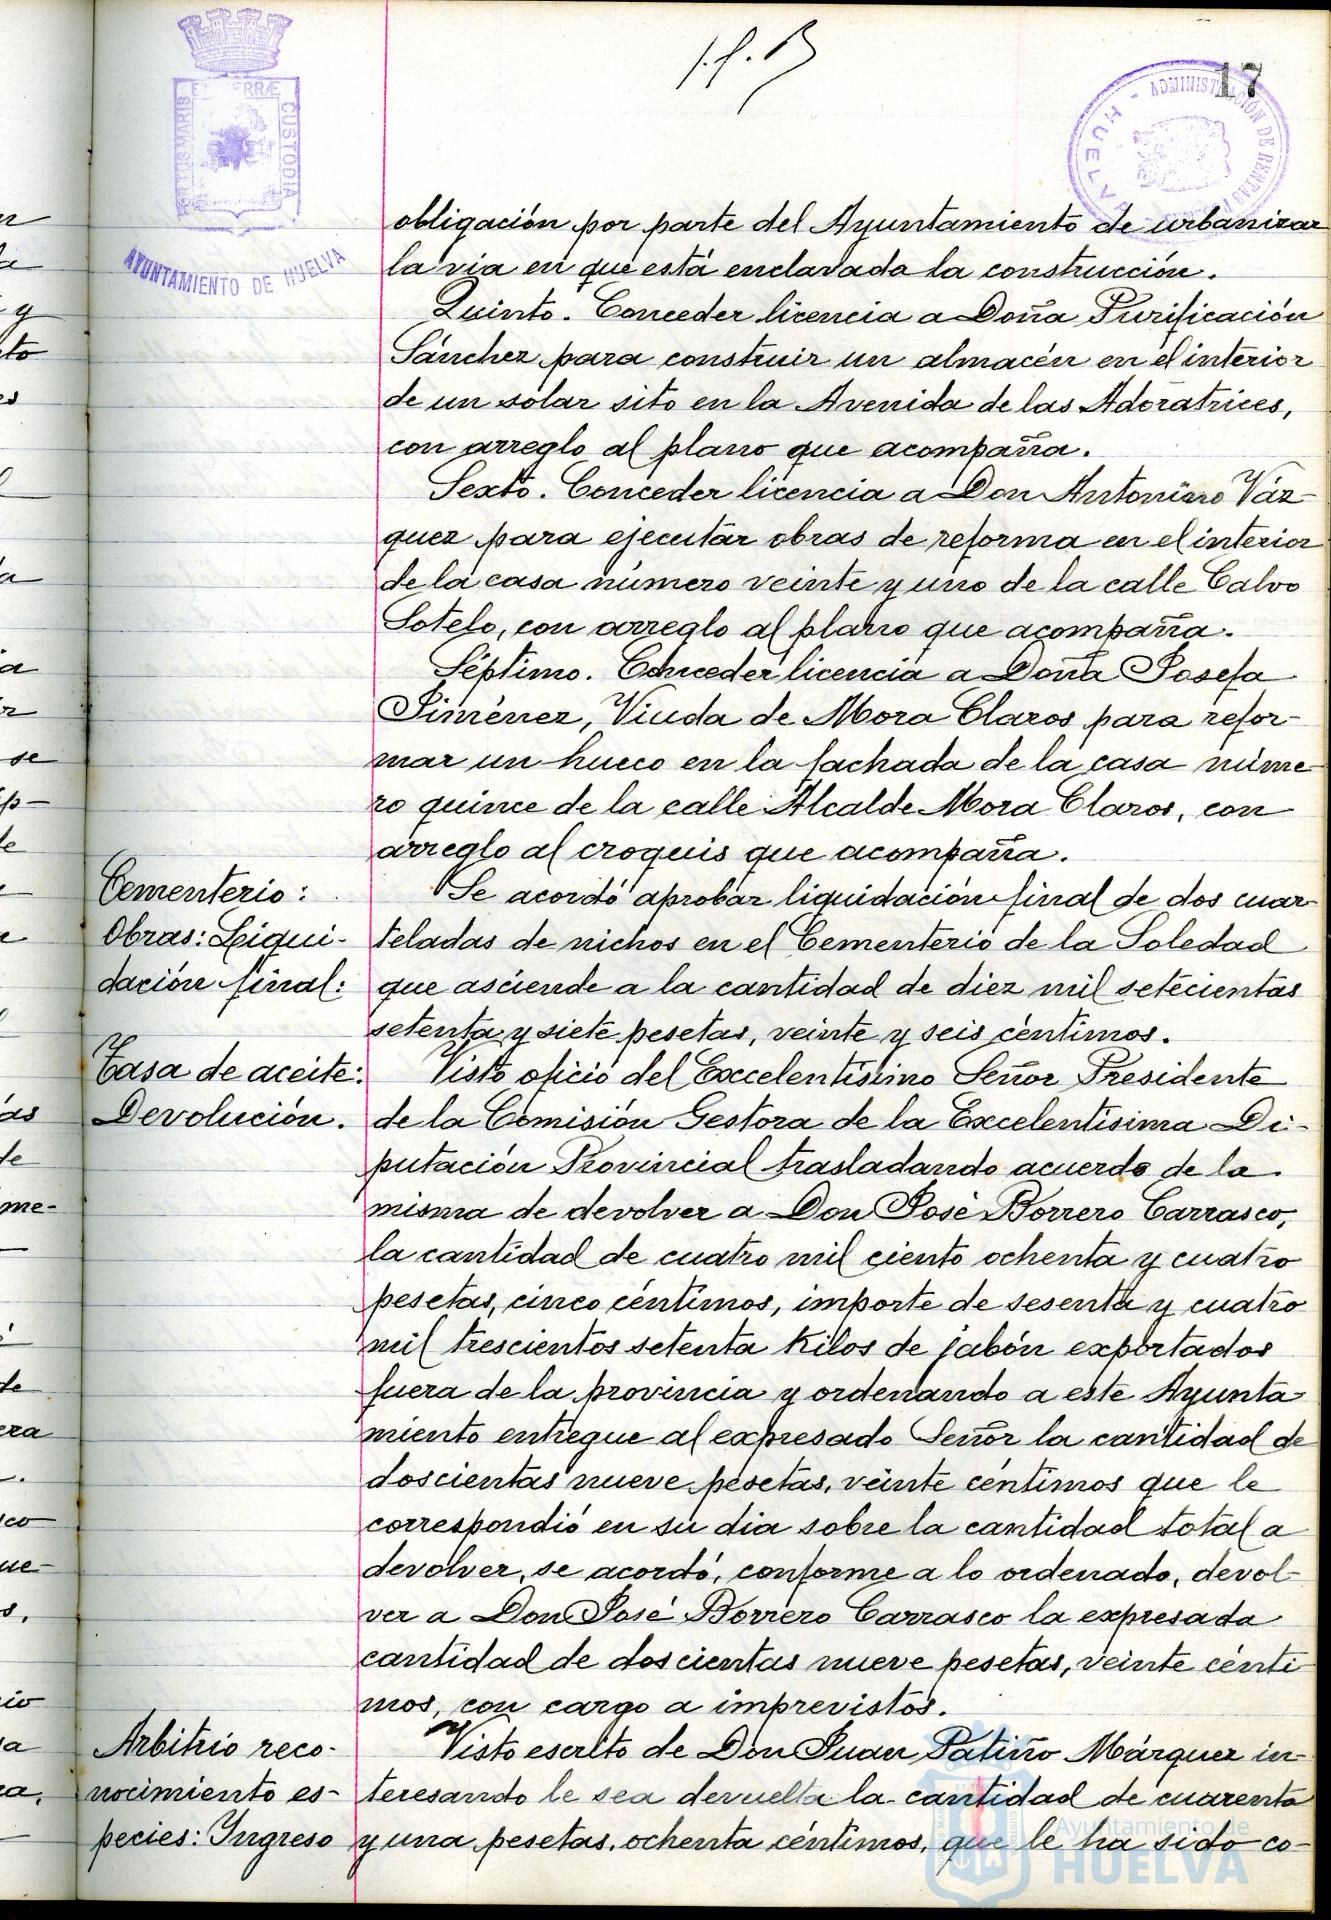 17
PORTUS MARIS ET TERRÆ CUSTODIA
AYUNTAMIENTO DE HUELVA
ADMINISTRACIÓN DE RENTAS
HUELVA
obligación por parte del Ayuntamiento de urbanizar
la via en que está enclavada la construcción.
Quinto. Conceder licencia a Doña Purificación
Sánchez para construir un almacén en el interior
de un solar sito en la Avenida de las Adoratrices,
con arreglo al plano que acompaña.
Sexto. Conceder licencia a Don Antonino Váz-
quez para ejecutar obras de reforma en el interior
de la casa número veinte y uno de la calle Calvo
Sotelo, con arreglo al plano que acompaña.
Séptimo. Conceder licencia a Doña Josefa
Jiménez, Viuda de Mora Claros para refor-
mar un hueco en la fachada de la casa núme-
ro quince de la calle Alcalde Mora Claros, con
arreglo al croquis que acompaña.
Cementerio:
Obras: Liqui-
dación final:
Se acordó aprobar liquidación final de dos cuar-
teladas de nichos en el Cementerio de la Soledad
que asciende a la cantidad de diez mil setecientas
setenta y siete pesetas, veinte y seis céntimos.
Tasa de aceite:
Devolución.
Visto oficio del Excelentísimo Señor Presidente
de la Comisión Gestora de la Excelentísima Di-
putación Provincial trasladando acuerdo de la
misma de devolver a Don José Borrero Carrasco,
la cantidad de cuatro mil ciento ochenta y cuatro
pesetas, cinco céntimos, importe de sesenta y cuatro
mil trescientos setenta Kilos de jabón exportados
fuera de la provincia y ordenando a este Ayunta-
miento entregue al expresado Señor la cantidad de
doscientas nueve pesetas, veinte céntimos que le
correspondió en su dia sobre la cantidad total a
devolver, se acordó, conforme a lo ordenado, devol-
ver a Don José Borrero Carrasco la expresada
cantidad de doscientas nueve pesetas, veinte cénti-
mos, con cargo a imprevistos.
Arbitrio reco-
nocimiento es-
pecies: Ingreso
Visto escrito de Don Juan Patiño Márquez in-
teresando le sea devuelta la cantidad de cuarenta
y una pesetas, ochenta céntimos, que le ha sido co-
Ayuntamiento de
HUELVA